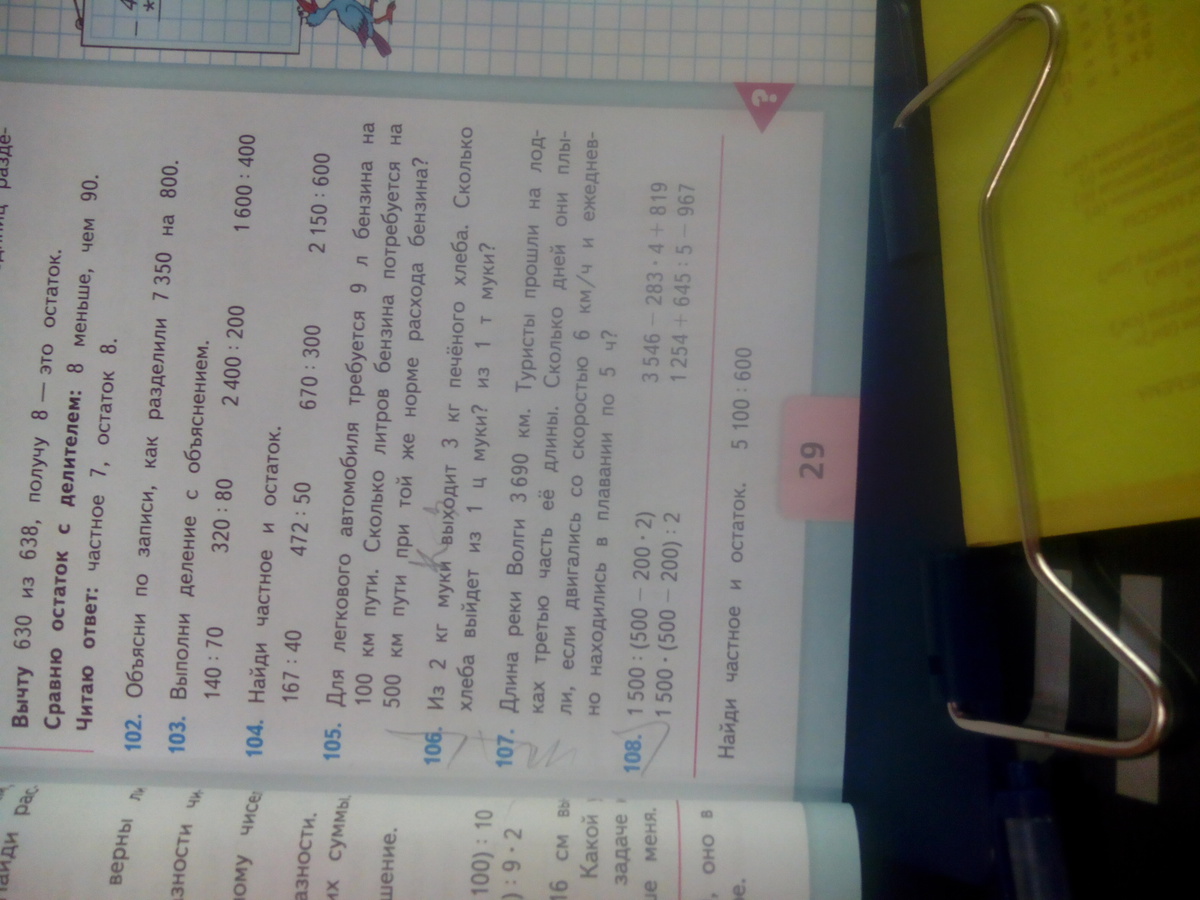 – 4
*
разде-
Вычту 630 из 638, получу 8 — это остаток.
Сравню остаток с делителем: 8 меньше, чем 90.
Читаю ответ: частное 7, остаток 8.
102. Объясни по записи, как разделили 7 350 на 800.
103. Выполни деление с объяснением.
140 : 70 320 : 80 2 400 : 200 1 600 : 400
104. Найди частное и остаток.
167 : 40 472 : 50 670 : 300 2 150 : 600
105. Для легкового автомобиля требуется 9 л бензина на
100 км пути. Сколько литров бензина потребуется на
500 км пути при той же норме расхода бензина?
106. Из 2 кг муки выходит 3 кг печёного хлеба. Сколько
хлеба выйдет из 1 ц муки? из 1 т муки?
107. Длина реки Волги 3 690 км. Туристы прошли на лод-
ках третью часть её длины. Сколько дней они плы-
ли, если двигались со скоростью 6 км/ч и ежеднев-
но находились в плавании по 5 ч?
108. 1 500 : (500 – 200 · 2) 3 546 – 283 · 4 + 819
1 500 · (500 – 200) : 2 1 254 + 645 : 5 – 967
Найди частное и остаток. 5 100 : 600
?
29
верны
шение.
100) : 10
) : 9 · 2
16 см
Какой
задаче
меня.
, оно в